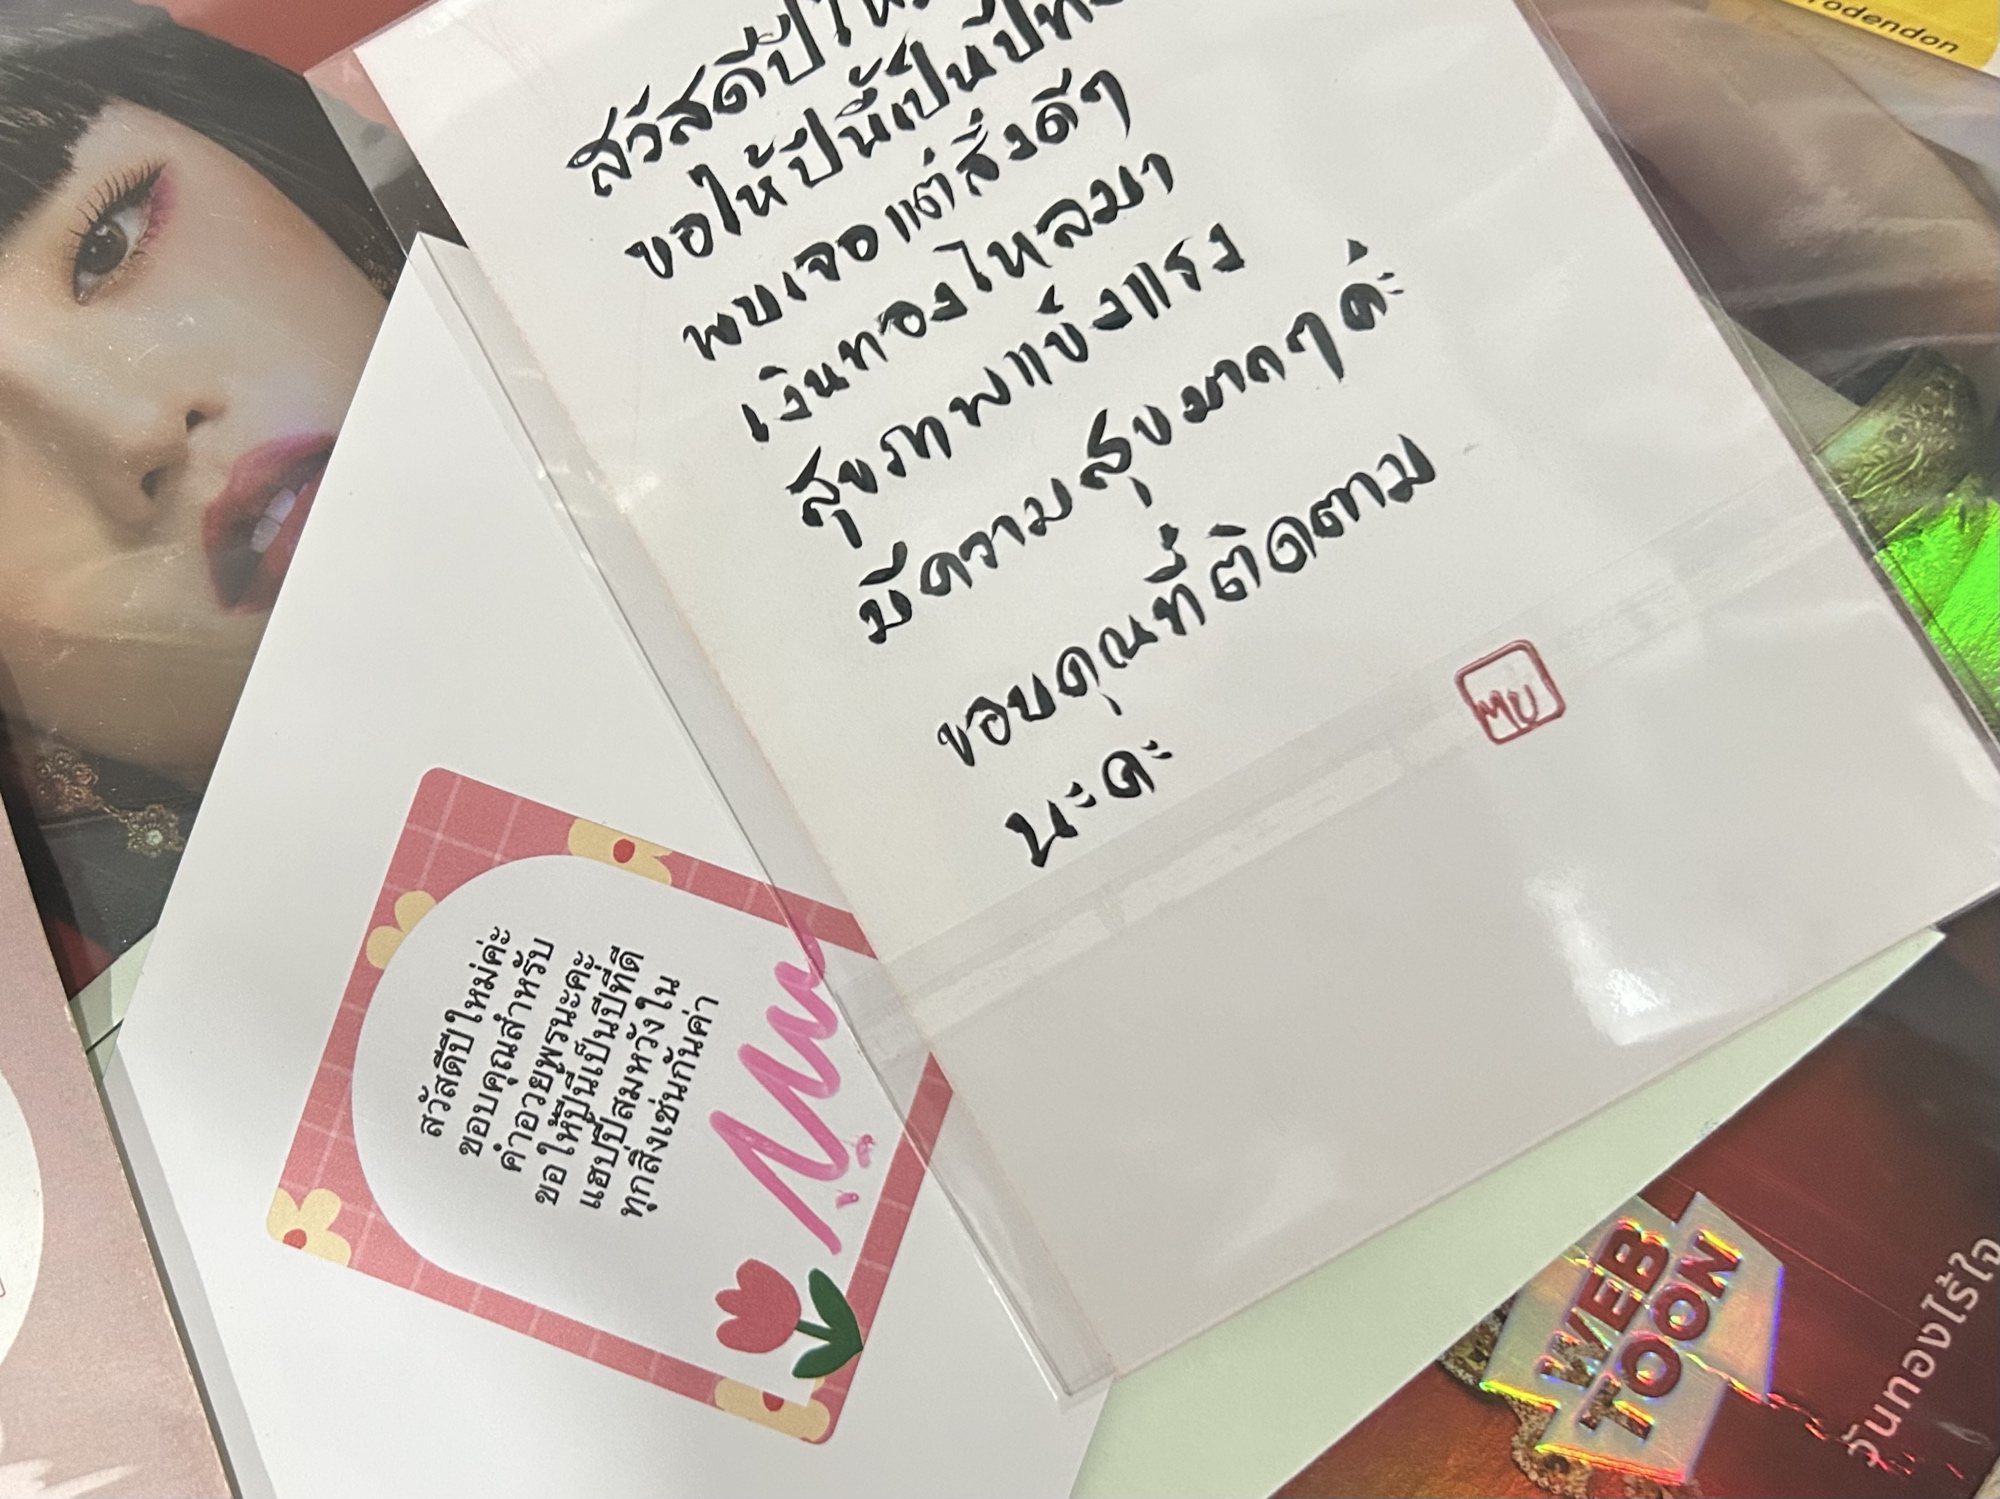 สวัสดีปีใหม่
ขอให้ปีนี้เป็นปีที่
พบเจอแต่สิ่งดีๆ
เงินทองไหลมา
สุขภาพแข็งแรง
มีความสุขมากๆ ค่ะ
ขอบคุณที่ติดตาม
นะคะ
MU
สวัสดีปีใหม่ค่ะ
ขอบคุณสำหรับ
คำอวยพรนะคะ
ขอให้ปีนี้เป็นปีที่ดี
แฮปปี้สมหวังใน
ทุกสิ่งเช่นกันค่า
WEB
TOON
วันทองไร้ใจ